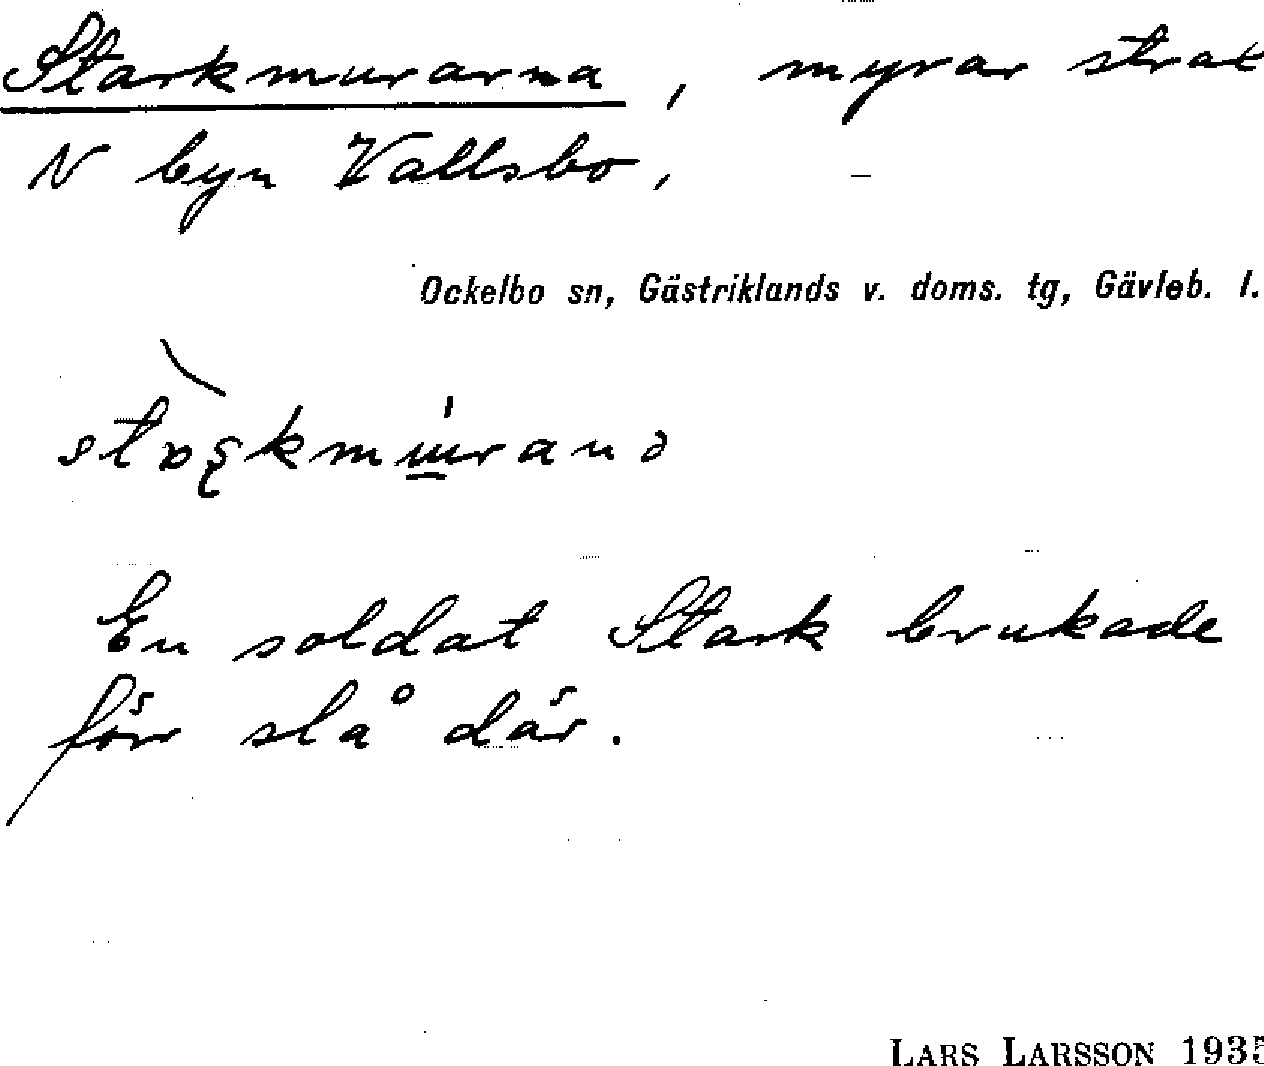 Starkmurarna, myrar strax
N byn Vallsbo, –
Ockelbo sn, Gästriklands v. doms. tg, Gävleb. l.
En soldat Stark brukade
förr slå där.
LARS LARSSON 1935